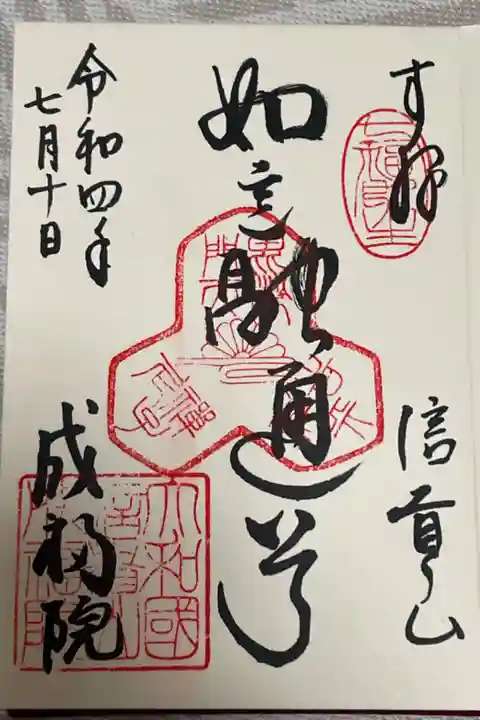 奉拝
信貴山
如意融通尊
令和四年
七月十日
成福院
大和國
信貴山
成福院